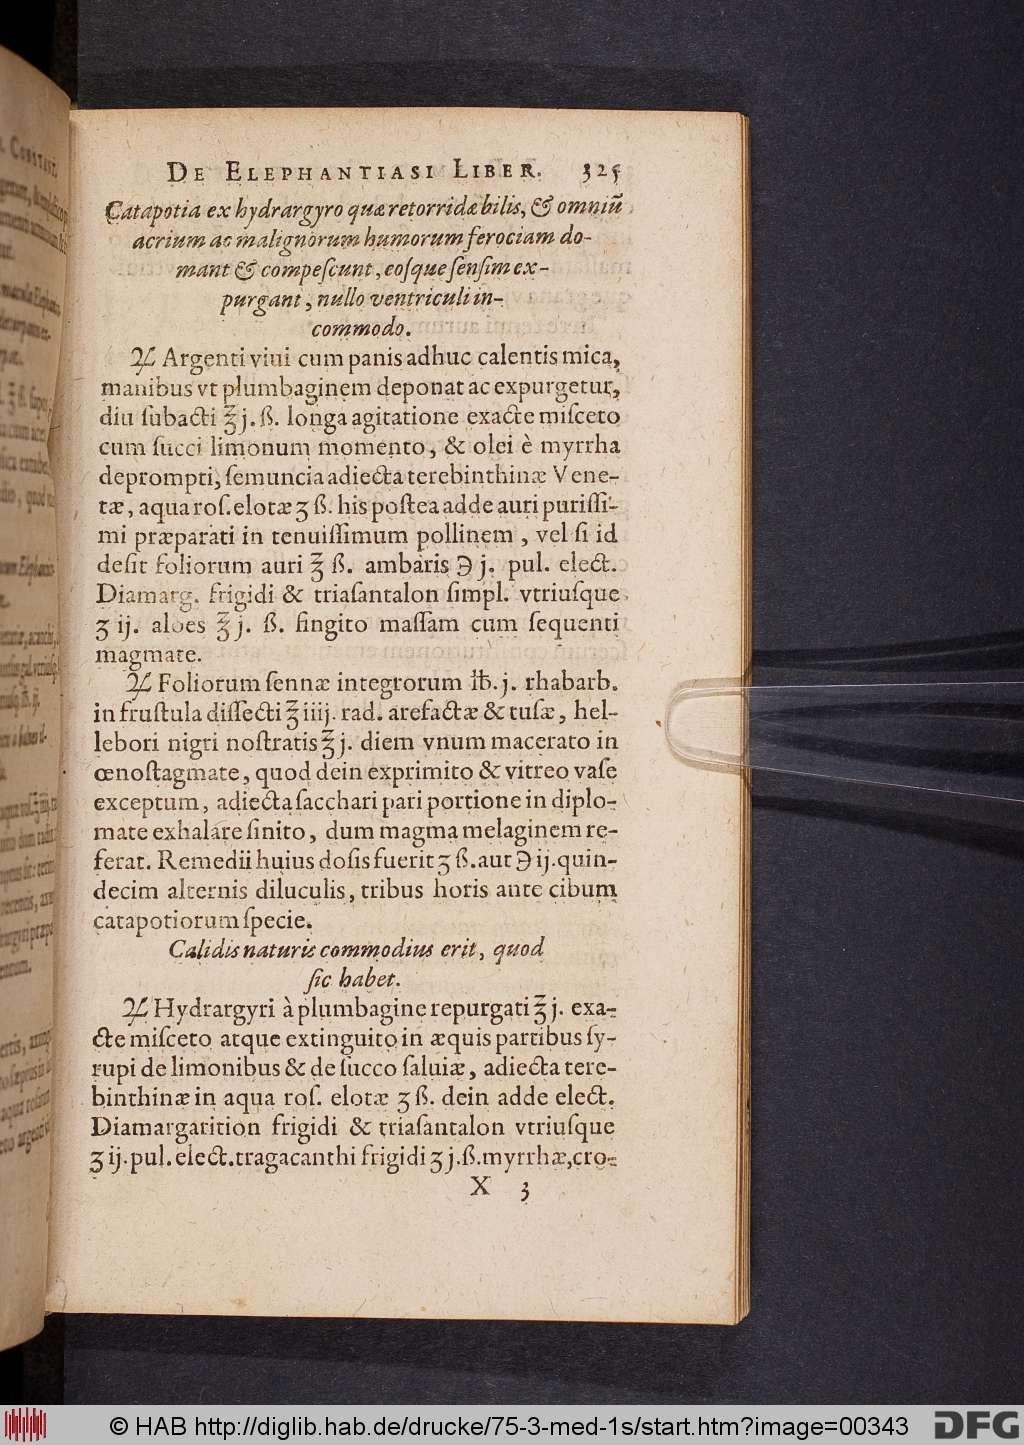 De Elephantiasi Liber. 325
Catapotia ex hydrargyro quæ retorridæ bilis, & omniū
acrium ac malignorum humorum ferociam do-
mant & compeſcunt, eoſque ſenſim ex-
purgant, nullo ventriculi in-
commodo.
♃ Argenti viui cum panis adhuc calentis mica,
manibus vt plumbaginem deponat ac expurgetur,
diu ſubacti ℥ j. ß. longa agitatione exacte miſceto
cum ſucci limonum momento, & olei è myrrha
deprompti, ſemuncia adiecta terebinthinæ Vene-
tæ, aqua roſ. elotæ ʒ ß. his poſtea adde auri puriſſi-
mi præparati in tenuiſſimum pollinem, vel ſi id
deſit foliorum auri ℥ ß. ambaris ℈ j. pul. elect.
Diamarg. frigidi & triaſantalon ſimpl. vtriuſque
ʒ ij. aloes ℥ j. ß. fingito maſſam cum ſequenti
magmate.
♃ Foliorum ſennæ integrorum ℔. j. rhabarb.
in fruſtula diſſecti ℥ iiij. rad. arefactæ & tuſæ, hel-
lebori nigri noſtratis ℥ j. diem vnum macerato in
œnoſtagmate, quod dein exprimito & vitreo vaſe
exceptum, adiecta ſacchari pari portione in diplo-
mate exhalare ſinito, dum magma melaginem re-
ferat. Remedii huius doſis fuerit ʒ ß. aut ℈ ij. quin-
decim alternis diluculis, tribus horis ante cibum
catapotiorum ſpecie.
Calidis naturis commodius erit, quod
ſic habet.
♃ Hydrargyri à plumbagine repurgati ℥ j. exa-
cte miſceto atque extinguito in æquis partibus ſy-
rupi de limonibus & de ſucco ſaluiæ, adiecta tere-
binthinæ in aqua roſ. elotæ ʒ ß. dein adde elect.
Diamargarition frigidi & triaſantalon vtriuſque
ʒ ij. pul. elect. tragacanthi frigidi ʒ j. ß. myrrhæ, cro-
X 3
© HAB http://diglib.hab.de/drucke/75-3-med-1s/start.htm?image=00343
DFG